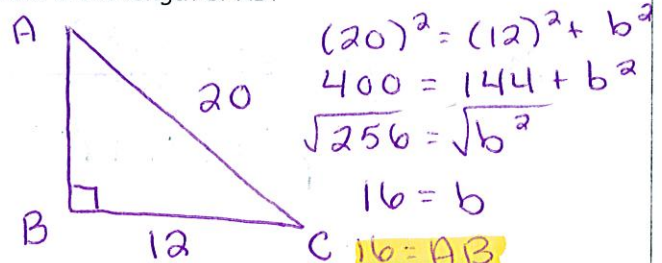 A
20
B
12
C
(20)² = (12)² + b²
400 = 144 + b²
√256 = √b²
16 = b
16 = AB